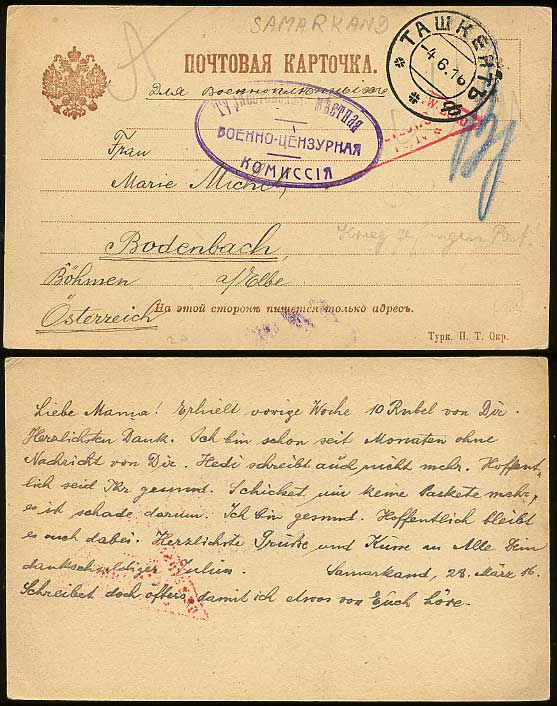 SAMARKAND
ПОЧТОВАЯ КАРТОЧКА.
ТАШКЕНТЪ
-4.6.16
для военноплѣнныхъ
МѢСТНАЯ
ВОЕННО-ЦЕНЗУРНАЯ
КОМИССІЯ
Frau
Marie Michel,
Bodenbach,
Böhmen a/Elbe
Österreich
На этой сторонѣ пишется только адресъ.
Турк. П. Т. Окр.
Liebe Mama! Erhielt vorige Woche 10 Rubel von Dir.
Herzlichsten Dank. Ich bin schon seit Monaten ohne
Nachricht von Dir. Hedi schreibt auch nicht mehr. Hoffent-
lich seid Ihr gesund. Schicket mir keine Packete mehr,
es ist schade darum. Ich bin gesund. Hoffentlich bleibt
es auch dabei. Herzlichste Grüße und Küsse an Alle Dein
dankschuldiger Julius. Samarkand, 28. März 16.
Schreibet doch öfters, damit ich etwas von Euch höre.